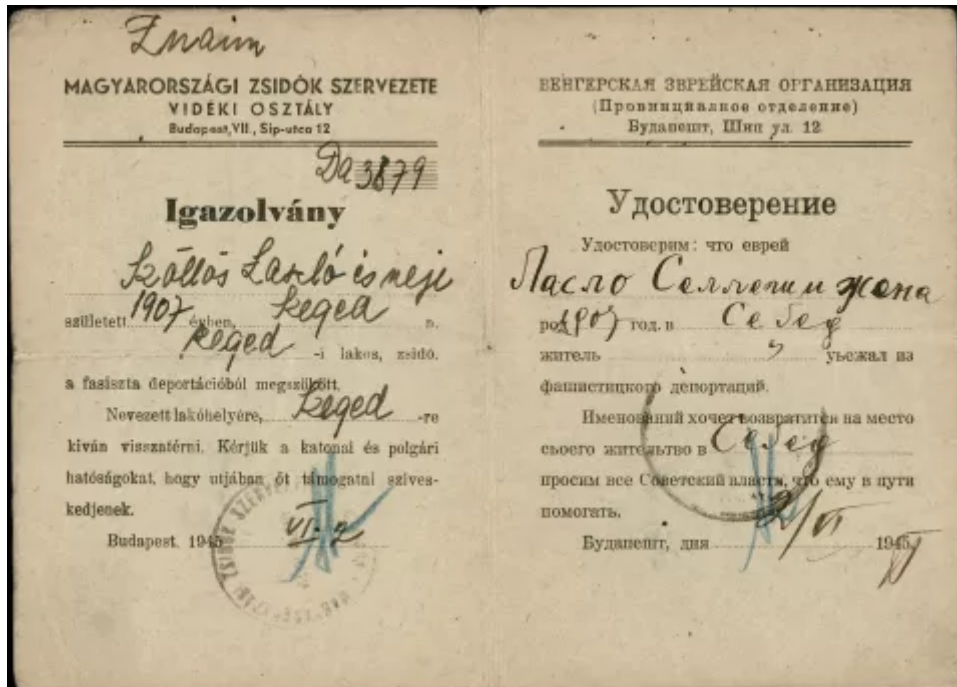 Znaim
MAGYARORSZÁGI ZSIDÓK SZERVEZETE
VIDÉKI OSZTÁLY
Budapest, VII., Sip-utca 12
Da 3879
Igazolvány
Szöllös László és neje
született 1907 évben, Szeged n.
Szeged -i lakos, zsidó,
a fasiszta deportációból megszökött.
Nevezett lakóhelyére, Szeged -re
kiván visszatérni. Kérjük a katonai és polgári
hatóságokat, hogy utjában őt támogatni szives-
kedjenek.
Budapest, 1945 VI-2
ВЕНГЕРСКАЯ ЭВРЕЙСКАЯ ОРГАНИЗАЦИЯ
(Провинциалное отделение)
Будапешт, Шип ул. 12
Удостоверение
Удостоверим: что еврей
Ласло и жена
род 1907 год. в Сегед
житель уьежал из
фашистицкого депортаций.
Именований хочет возвратится на место
сьоего жительтво в Сегед
просим все Советский власти, что ему в пути
помогать.
Будапешт, дня 2/VI 1945